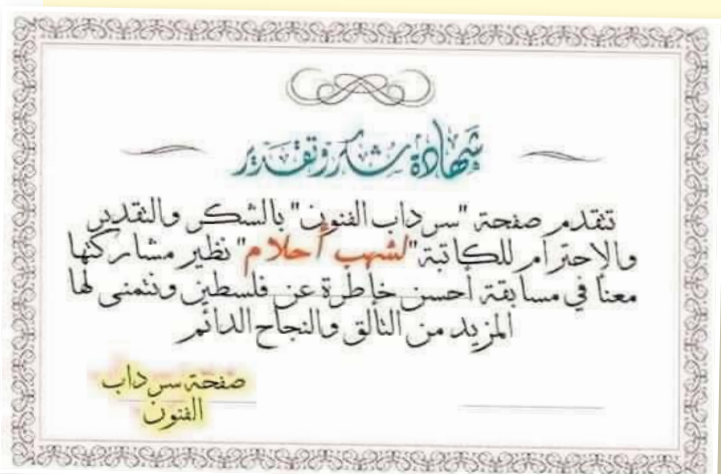 شهادة شكر وتقدير
تتقدم صفحة "سرداب الفنون" بالشكر والتقدير
والإحترام للكاتبة "لشهب أحلام" نظير مشاركتها
معنا في مسابقة أحسن خاطرة عن فلسطين ونتمنى لها
المزيد من التألق والنجاح الدائم
صفحة سرداب
الفنون